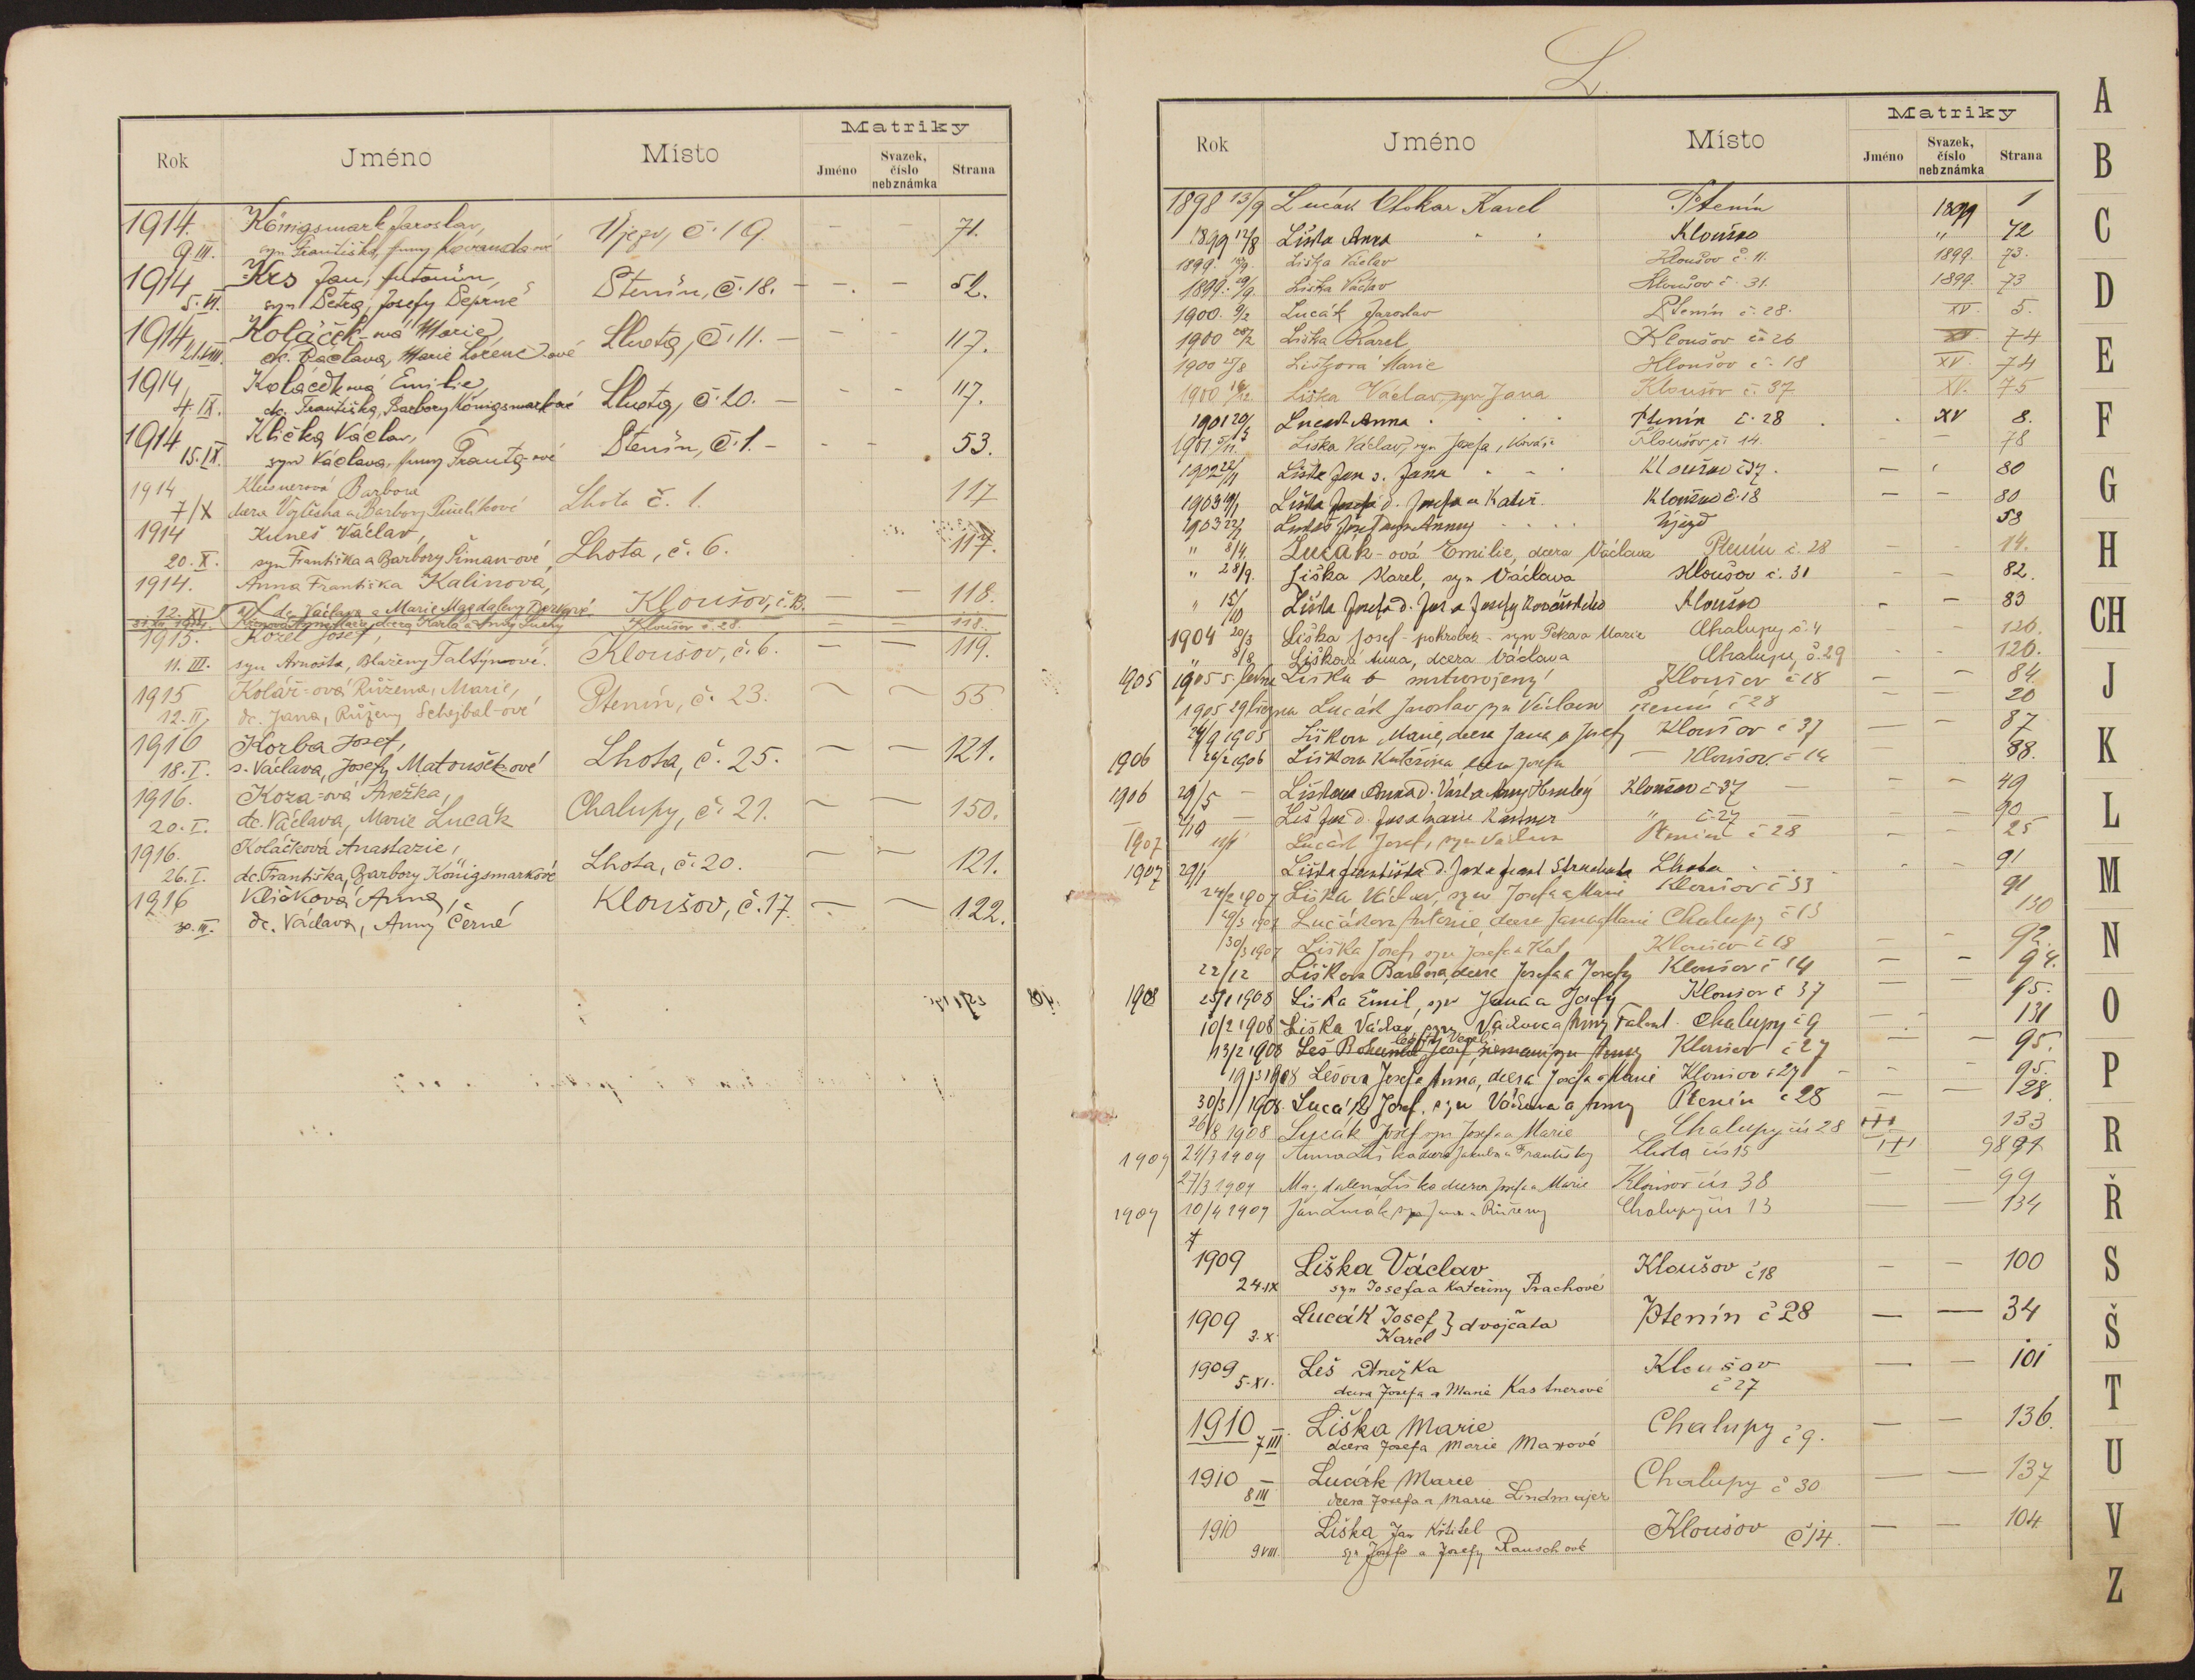 Rok Jméno Místo Matriky
Jméno Svazek, číslo nebznámka Strana
1914. Königsmark Jaroslav, Újezd, č. 19. 71.
9.III. syn Františka, Anny
1914 Krs Jan, Antonín, Ptenín, č. 18. 52.
5.VI. syn Petra, Josefy Deprné
1914 Koláček-ová Marie Lhota, č. 11. 117.
21.VIII. dc. Václava, Marie Lorenc-ové
1914 Koláčková Emilie, Lhota, č. 20. 117.
4.IX. dc. Františka, Barbory Königsmarkové
1914 Klička Václav, Ptenín, č. 1. 53.
15.IX. syn Václava, Anny -ové
1914 Kleisnerová Barbora Lhota č. 1. 117
7/X dcera Vojtěcha a Barbory
1914 Kuneš Václav, Lhota, č. 6. 117.
20.X. syn Františka a Barbory Šiman-ové,
1914. Anna Františka Kalinová, Kloušov, č. 13. 118.
12.XI dc. Václava a Marie Magdaleny
Kloušov č. 28. 118.
1915. Kozel Josef, Kloušov, č. 6. 119.
11.III. syn Arnošta, Blaženy Faltýnové.
1915 Kolář-ová Růžena, Marie, Ptenín, č. 23. 55
12.II. dc. Jana, Růženy Schejbal-ové
1916 Korba Josef, Lhota, č. 25. 121.
18.I. s. Václava, Josefy Matouškové
1916. Koza-ová Anežka, Chalupy, č. 21. 150.
20.I. dc. Václava, Marie Lucák
1916. Koláčková Anastazie, Lhota, č. 20. 121.
26.I. dc. Františka, Barbory Königsmarkové
1916 Kličková Anna, Kloušov, č. 17. 122.
30.III. dc. Václava, Anny Černé
L.
Rok Jméno Místo Matriky
Jméno Svazek, číslo nebznámka Strana
1898 13/9 Lucák Otokar Karel Ptenín 1899 1
1899 12/8 Liška Anna Kloušov " 72
1899. Liška Václav Kloušov č. 11. 1899. 73.
1899. 29/9. Liška Václav Kloušov č. 31. 1899. 73
1900. 9/2 Lucák Jaroslav Ptenín č. 28. XV. 5.
1900 Liška Karel Kloušov č. 26 XV. 74
1900 25/8 Lišková Marie Kloušov č. 18 XV. 74
1900 16/12 Liška Václav, syn Jana Kloušov č. 37 XV. 75
1901 20/3 Lucák Anna Ptenín č. 28 XV 8.
1901 Liška Václav, syn Josefa, Kováře Kloušov č. 14. 78
1902 Liška Jan s. Jana Kloušov č 37. 80
1903 19/1 Liška Josefa d. Josefa a Kateř. Kloušov č. 18 80
1903 22/2 Josef syn Anny Újezd 58
" 8/4. Lucák-ová Emilie, dcera Václava Ptenín č. 28 14.
" 28/9. Liška Karel, syn Václava Kloušov č. 31 82.
" 15/10 Liška Josefa d. Jos. a Josefy Kloušov 83
1904 20/3 Liška Josef - pohrobek - syn Petra a Marie Chalupy č. 4 120.
" 8/8 Lišková Anna, dcera Václava Chalupy, č. 29 120.
1905 1905 5. Liška mrtvorozený Kloušov č 18 84.
1905 29 března Lucák Jaroslav syn Václava Ptenín č 28 20
24/9 1905 Lišková Marie, dcera Jana a Josefy Kloušov č 37 87
1906 26/2 1906 Lišková Kateřina dcera Josefa Kloušov č 14 88.
1906 29/5 Lišková Anna d. Václ. a Anny Kloušov č 37 49
Leš Jos. d. Jos. a Marie Kastner " č. 27 90
1907 Lucák Josef, syn Václava Ptenín č 28 25
1907 29/1 Liška Františka d. Jos. a Lhota 91
24/2 1907 Liška Václav, syn Josefa a Marie Kloušov č 33 91
29/3 1907 Lucáková Antonie, dcera Jana a Marie Chalupy č 13 130
30/3 1907 Liška Josef, syn Josefa a Kat. Kloušov č 18 92.
22/12 Lišková Barbora, dcera Josefa a Josefy Kloušov č 14 94.
1908 25/1 1908 Liška Emil, syn Jana a Josefy Kloušov č 37 95.
10/2 1908 Liška Václav, syn Václava a Anny Chalupy č 9 131
13/2 1908 Leš Bohumil Josef, syn Anny Kloušov č 27 95.
19/3 1908 Lešová Josefa Anna, dcera Josefa a Marie Kloušov č 27 95.
30/3 1908. Lucák Josef, syn Václava a Anny Ptenín č 28 28.
26/8 1908 Lucák Josef syn Josefa a Marie Chalupy čís 28 133
1909 21/3 1909 Anna Liška dcera Jakuba a Františky Lhota čís 15 98 97
27/3 1909 Magdalena Liška dcera Josefa a Marie Kloušov čís 38 99
1909 10/4 1909 Jan Lucák, syn Jana a Růženy Chalupy čís 13 134
1909 Liška Václav Kloušov č 18 100
24.IX syn Josefa a Kateřiny Prachové
1909 Lucák Josef } dvojčata Ptenín č 28 34
3.X. Karel
1909 Leš Anežka Kloušov 101
5.XI. dcera Josefa a Marie Kastnerové č 27
1910 Liška Marie Chalupy č 9. 136.
7 III. dcera Josefa Marie Maxové
1910 Lucák Marie Chalupy č 30 137
8 III dcera Josefa a Marie Lindmajer
1910 Liška Jan Křtitel Kloušov č 14. 104
9 VIII. syn Josefa a Josefy Rauschové
A
B
C
D
E
F
G
H
CH
J
K
L
M
N
O
P
R
Ř
S
Š
T
U
V
Z